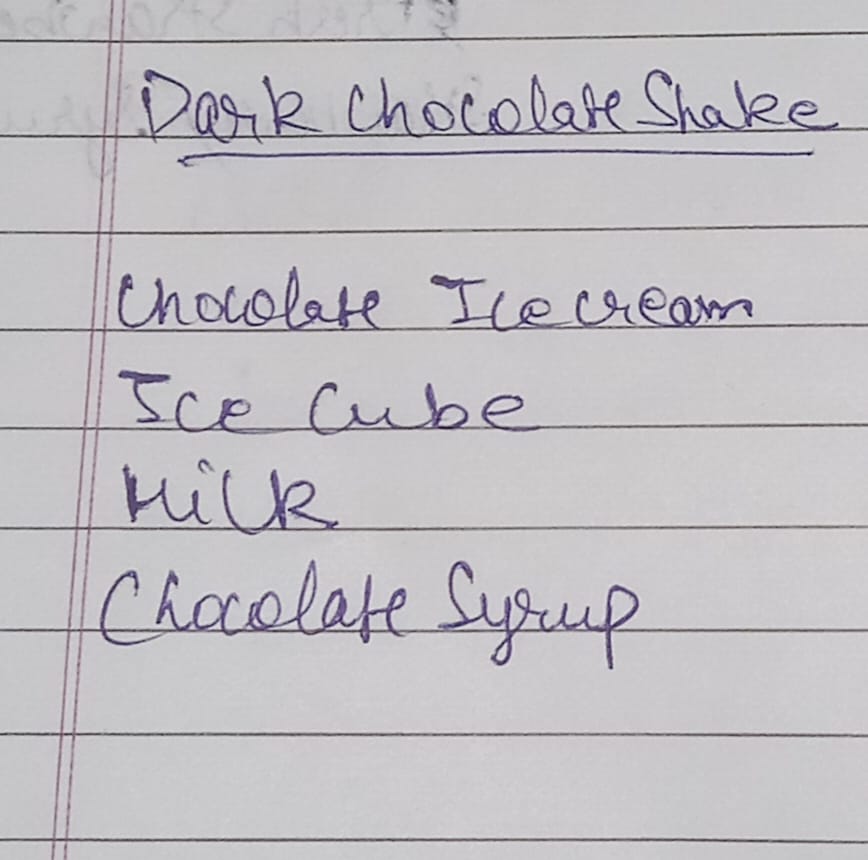 Dark Chocolate Shake
Chocolate Ice cream
Ice Cube
Milk
Chocolate Syrup